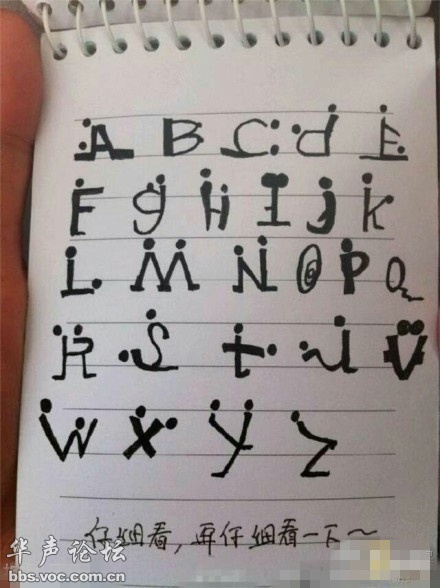 A B C d E
F g H I j K
L M N O P Q
R S t u V
W X Y Z
仔细看，再仔细看一下～
华声论坛
bbs.voc.com.cn